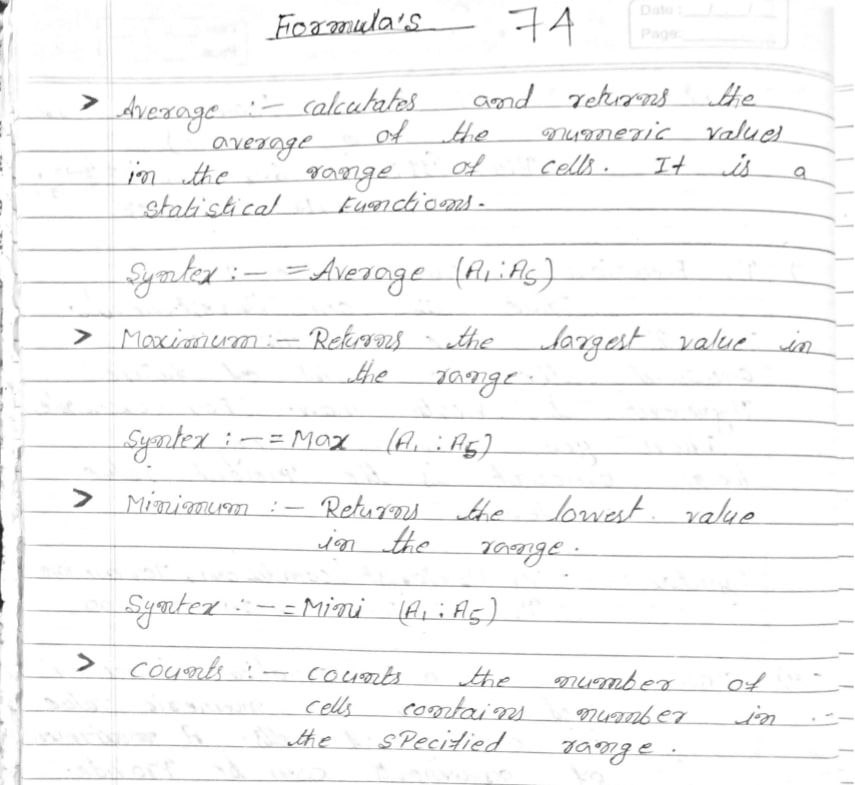 Formula's 74
Date: / /
Page:
> Average :- calcutates and returns the
average of the numeric values
in the range of cells. It is a
statistical Functions.
Syntex :- = Average (A1:A5)
> Maximum :- Returns the largest value in
the range.
Syntex :- = Max (A1:A5)
> Minimum :- Returns the lowest value
in the range.
Syntex :- = Mini (A1:A5)
> counts :- counts the number of
cells contains number in
the specified range.